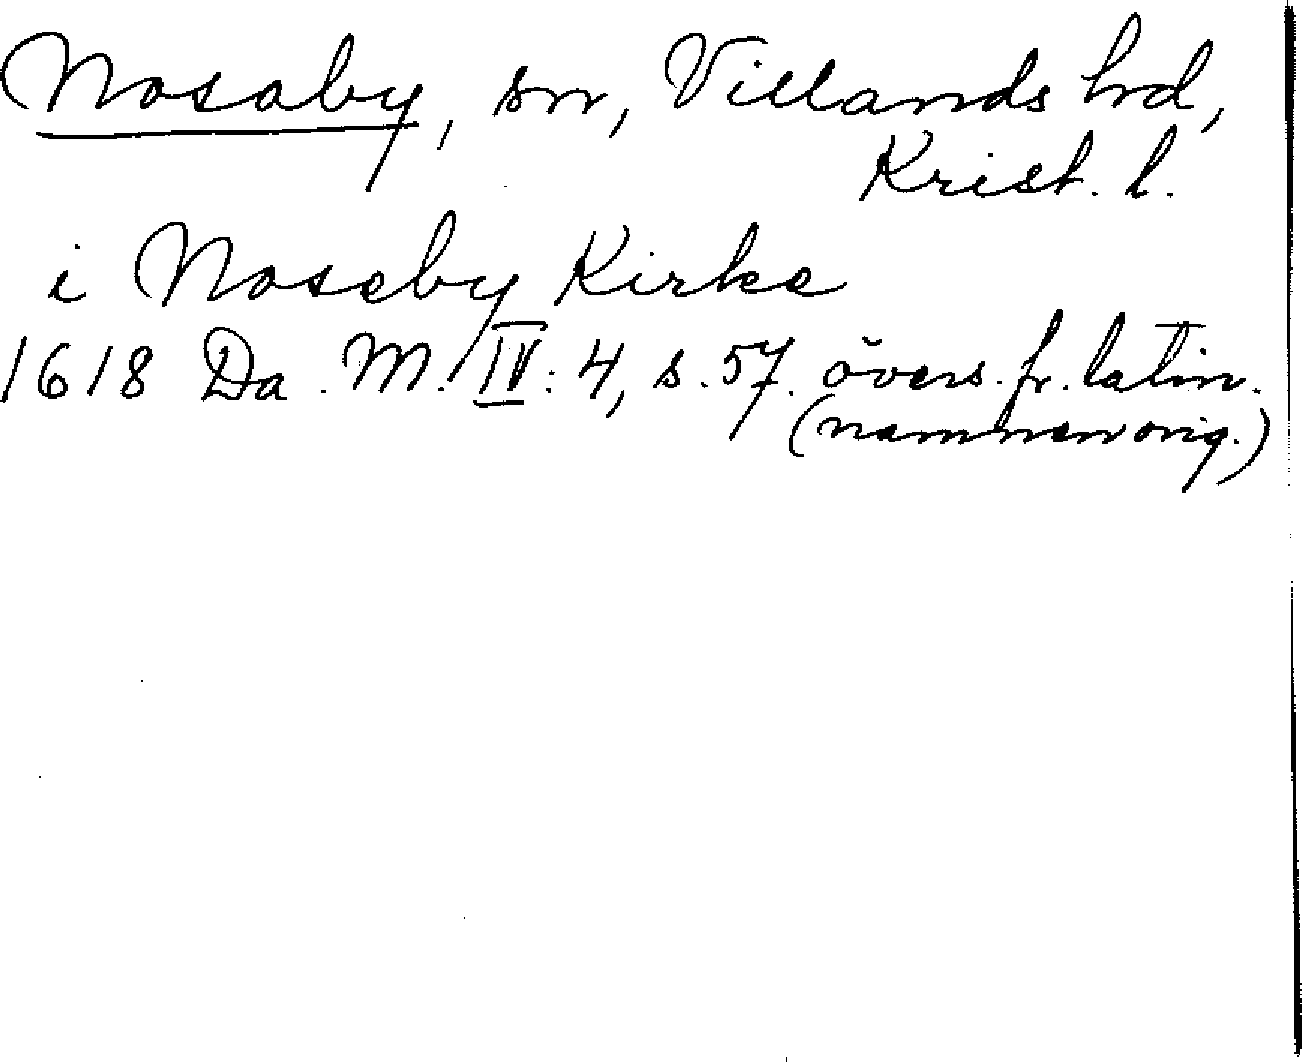 Nosaby, sn, Villands hd,
Krist. l.
i Noseby Kirke
1618 Da. M. IV: 4, s. 57. övers. fr. latin.
(namnen orig.)